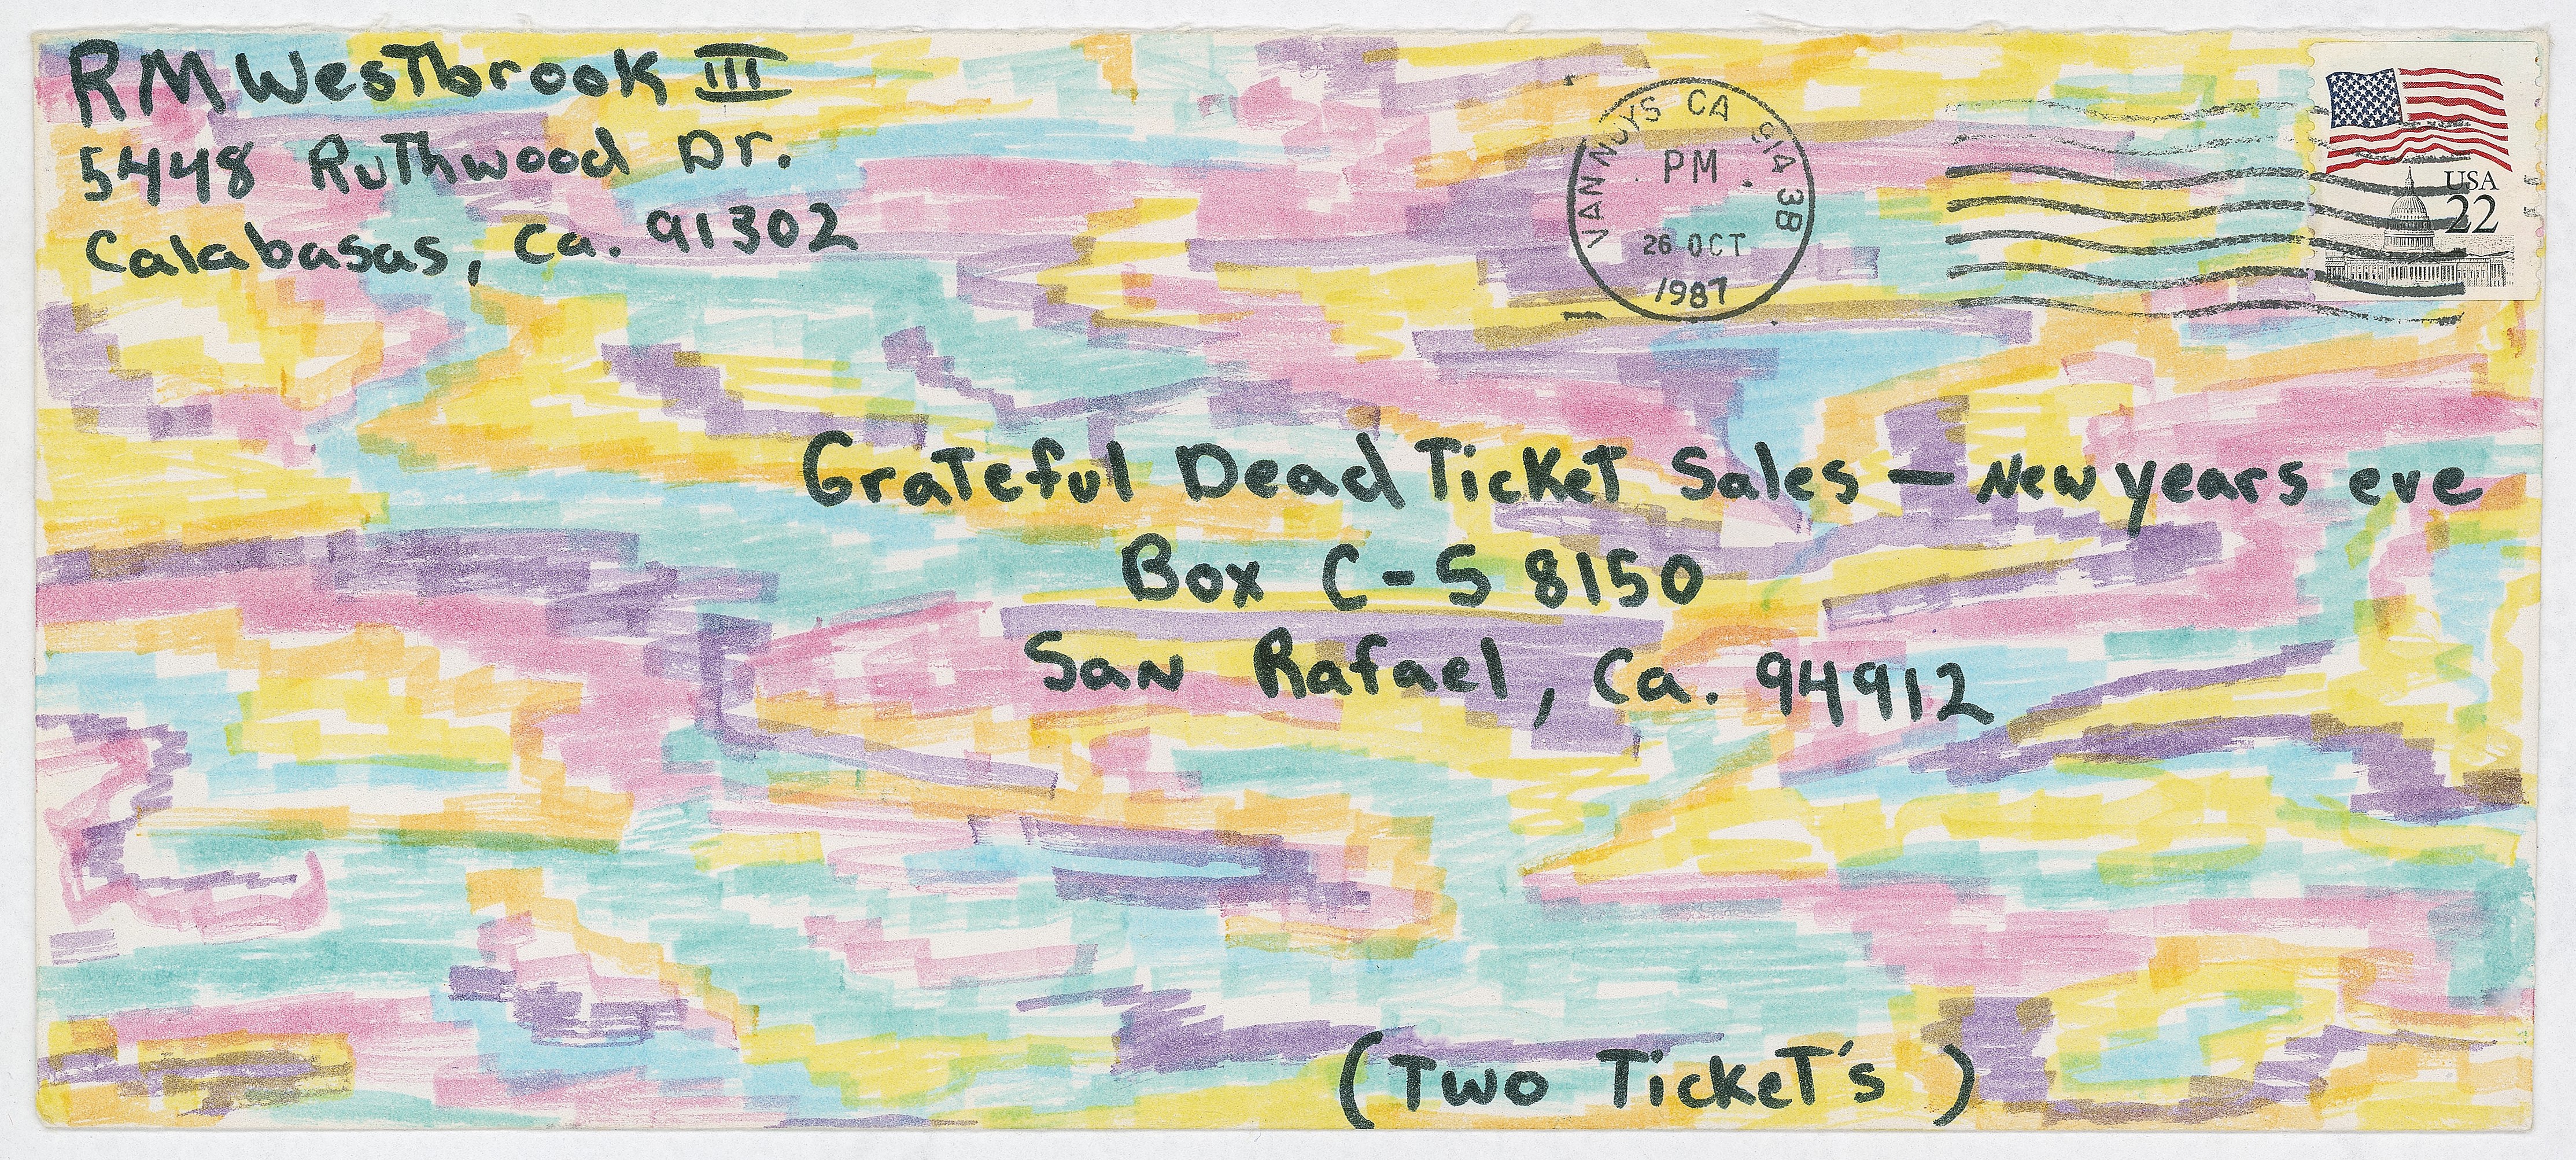 RM Westbrook III
5448 Ruthwood Dr.
Calabasas, Ca. 91302
VAN NUYS CA 914 3B
PM
26 OCT
1987
USA
22
Grateful Dead Ticket Sales — New years eve
Box C-S 8150
San Rafael, Ca. 94912
(Two Ticket's)